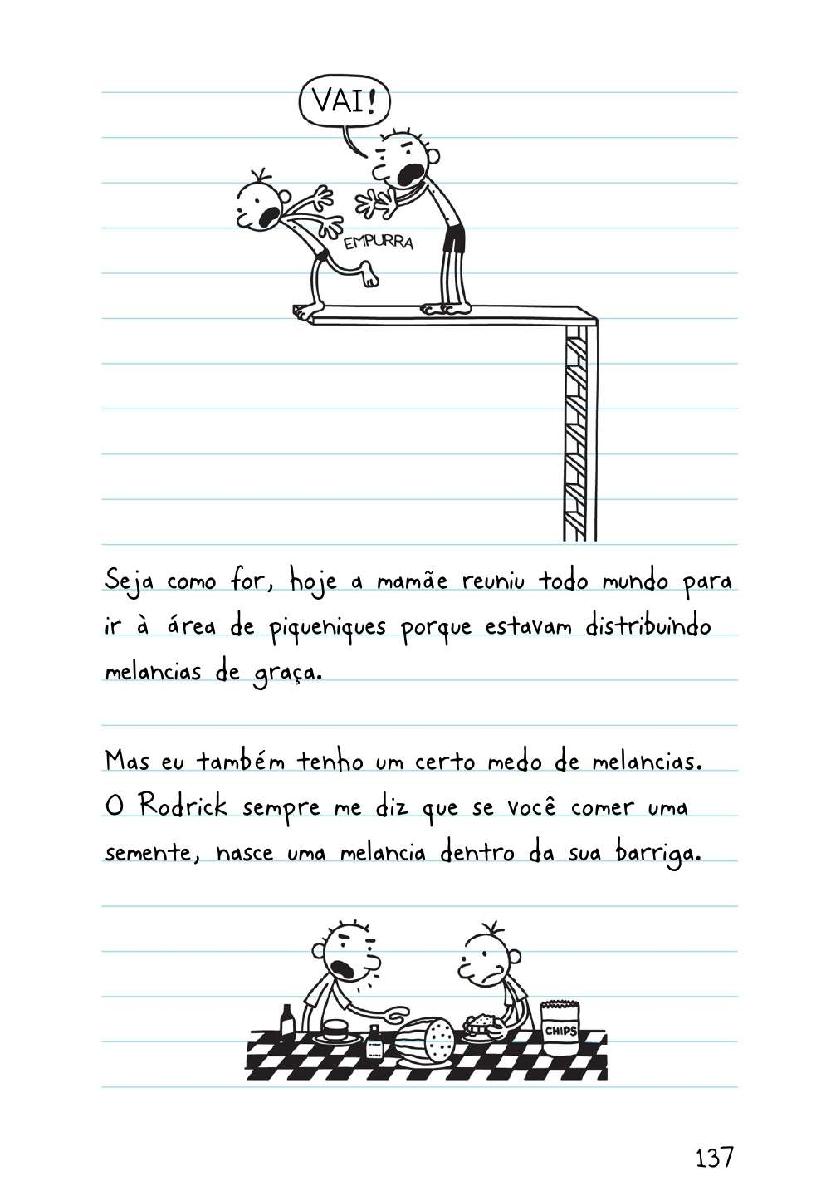 VAI!
EMPURRA
Seja como for, hoje a mamãe reuniu todo mundo para
ir à área de piqueniques porque estavam distribuindo
melancias de graça.
Mas eu também tenho um certo medo de melancias.
O Rodrick sempre me diz que se você comer uma
semente, nasce uma melancia dentro da sua barriga.
CHIPS
137